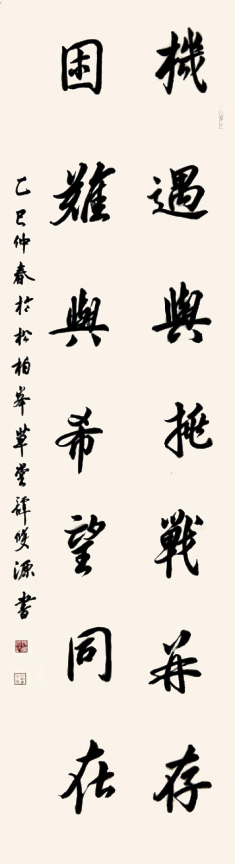 機遇與挑戰并存
困難與希望同在
乙巳仲春於松柏峯草堂譚雙源書